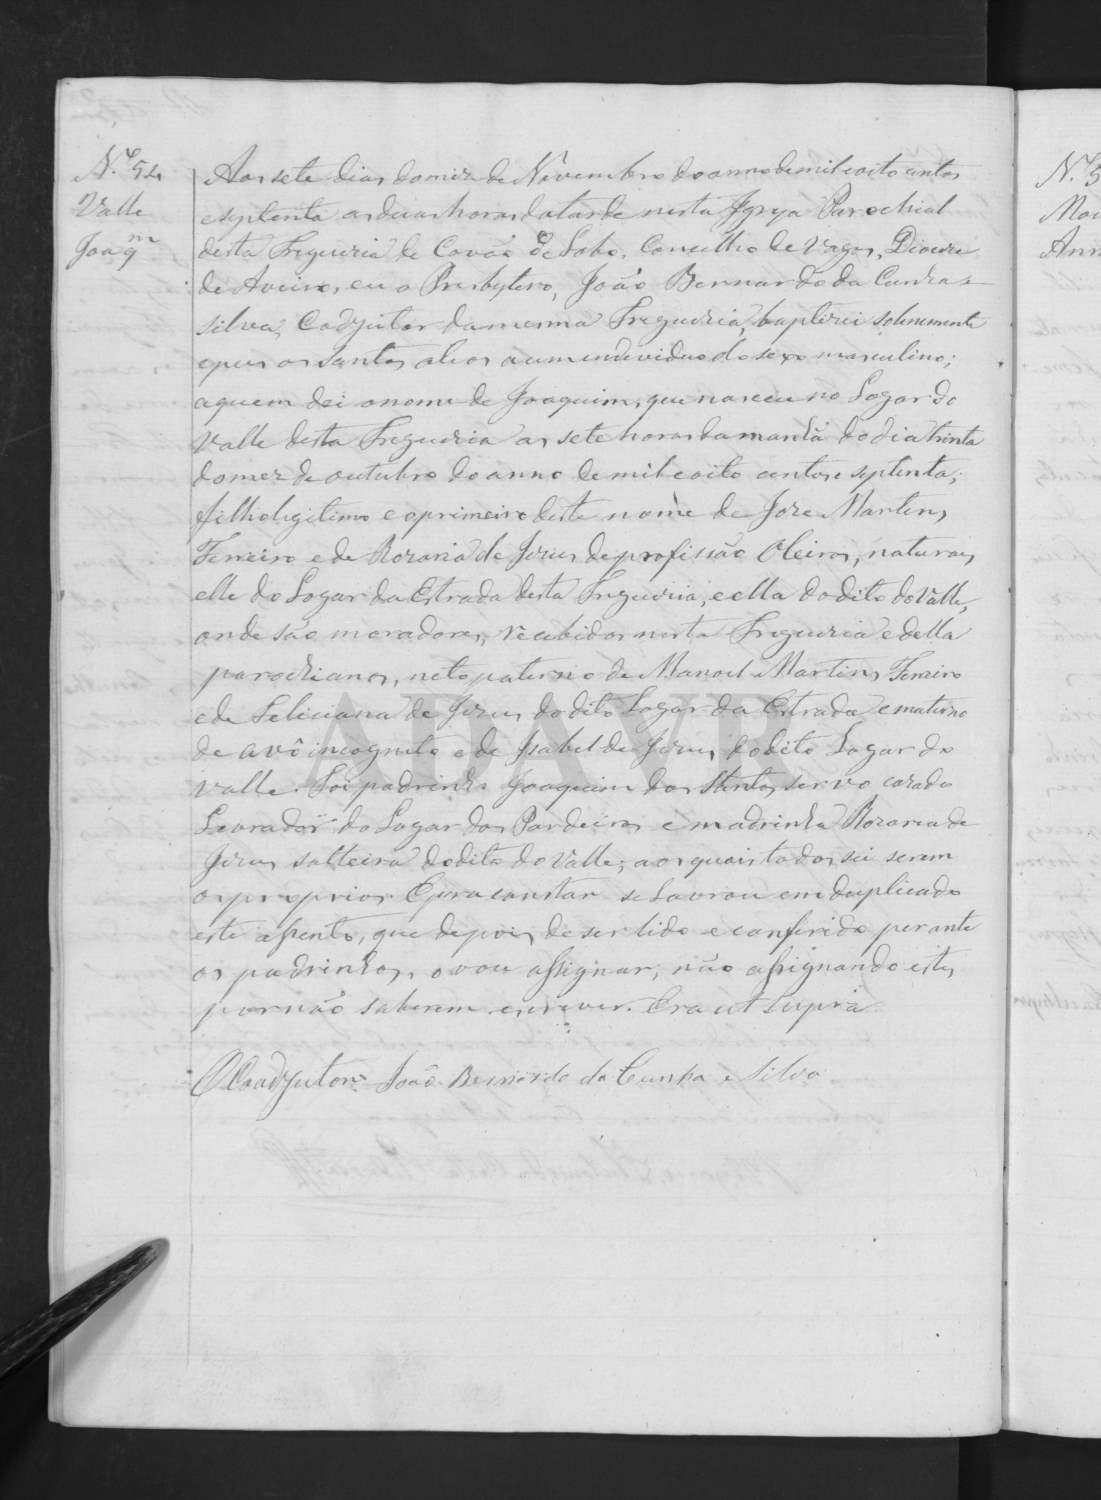 N.º 54
Valle
Joaqm
Aos sete dias do mez de Novembro do anno de mil e oito centos
e septenta as duas horas da tarde nesta Igreja Parochial
desta Freguezia de Covão do Lobo, Concelho de Vagos, Diocese
de Aveiro, eu o Presbytero, João Bernardo da Cunha e
Silva, Coadjutor da mesma Freguezia, baptizei solenemente
e puz os santos oleos a um individuo do sexo masculino;
a quem dei o nome de Joaquim, que nasceu no Logar do
Valle desta Freguezia as sete horas da manhã do dia trinta
do mez de outubro do anno de mil e oito centos e septenta;
filho legitimo e o primeiro deste nome de Joze Martins
Ferreiro e de Rozaria de Jezus de profissão Oleiros, naturaes
elle do Logar da Estrada desta Freguezia, e ella do dito do Valle,
onde são moradores, recebidos nesta Freguezia e della
parochianos, neto paterno de Manoel Martins Ferreiro
e de Feliciana de Jezus do dito Logar da Estrada e materno
de avô incognito e de Izabel de Jezus do dito Logar do
Valle. Foi padrinho Joaquim dos Santos servo cazado
Lavrador do Logar dos Pardeiros e madrinha Rozaria de
Jezus solteira do dito do Valle; aos quais todos sei serem
os proprios. E para constar se lavrou em duplicado
este assento, que depois de ser lido e conferido perante
os padrinhos, o vou assignar, não assignando estes
por não saberem escrever. Era ut supra
O Coadjutor João Bernardo da Cunha e Silva
N.º 5
Ann
ADAVR